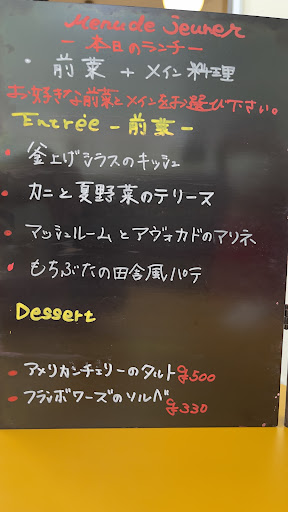 Menu de jeuner
ー本日のランチー
・前菜 + メイン料理
お好きな前菜とメインをお選び下さい。
Entrée - 前菜 -
・釜上げシラスのキッシュ
・カニと夏野菜のテリーヌ
・マッシュルームとアヴォカドのマリネ
・もちぶたの田舎風パテ
Dessert
・アメリカンチェリーのタルト ¥500
・フランボワーズのソルベ ¥330